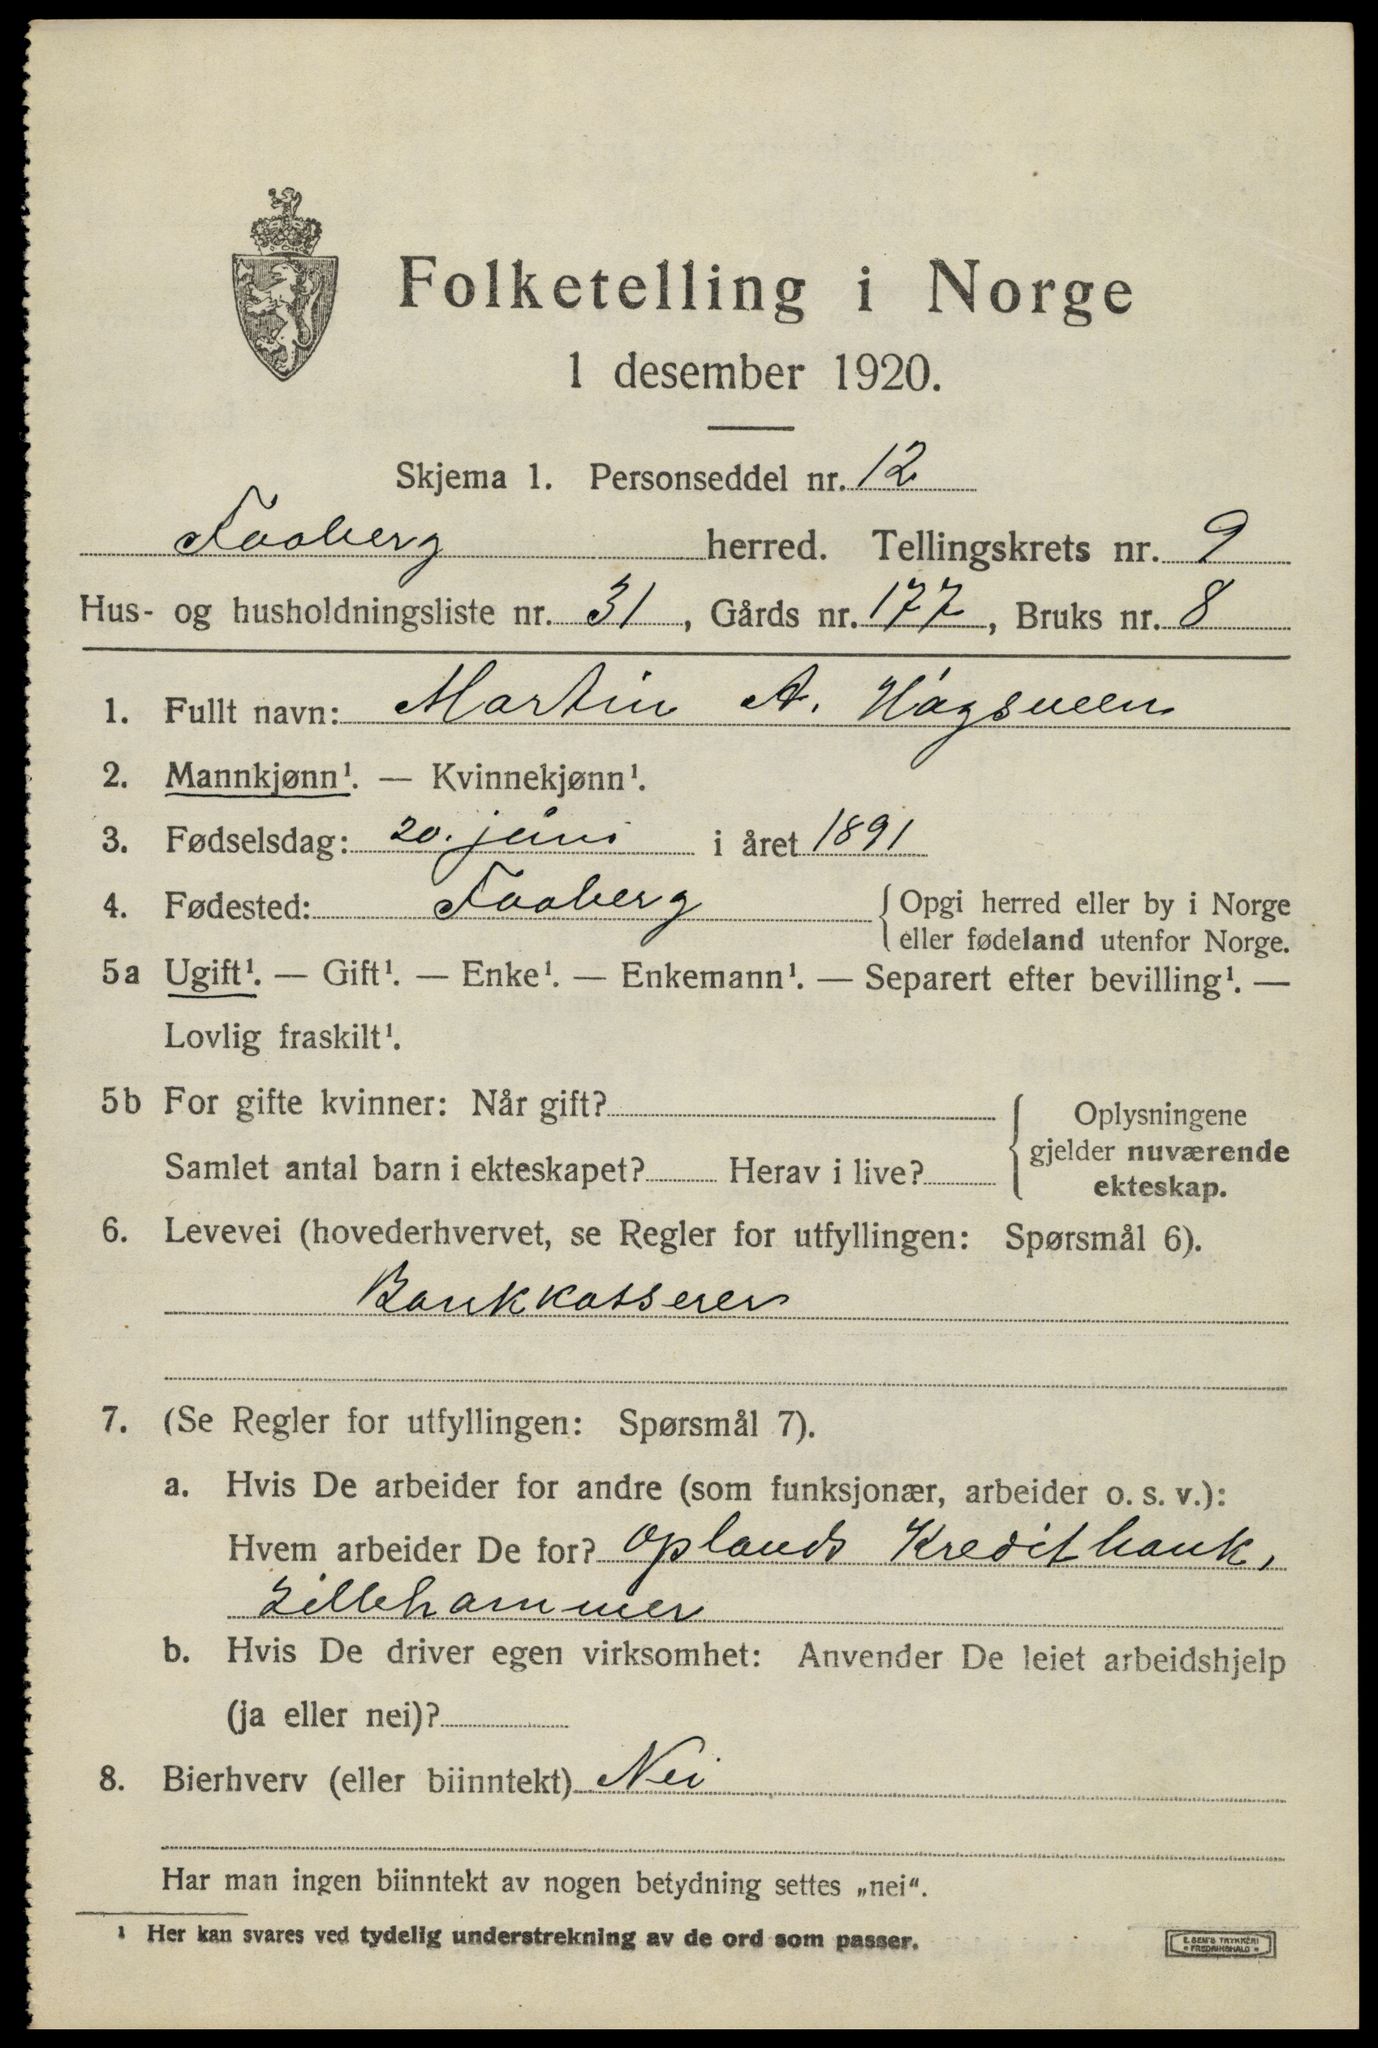 Folketelling i Norge
1 desember 1920.
Skjema 1. Personseddel nr. 12
Faaberg herred. Tellingskrets nr. 9
Hus- og husholdningsliste nr. 31, Gårds nr. 177, Bruks nr. 8
1. Fullt navn: Martin A. Högsveen
2. Mannkjønn¹. — Kvinnekjønn¹.
3. Fødselsdag: 20. juni i året 1891
4. Fødested: Faaberg { Opgi herred eller by i Norge
eller fødeland utenfor Norge.
5a Ugift¹. — Gift¹. — Enke¹. — Enkemann¹. — Separert efter bevilling¹. —
Lovlig fraskilt¹.
5b For gifte kvinner: Når gift?
Samlet antal barn i ekteskapet? Herav i live?
Oplysningene
gjelder nuværende
ekteskap.
6. Levevei (hovederhvervet, se Regler for utfyllingen: Spørsmål 6).
Bankkasserer
7. (Se Regler for utfyllingen: Spørsmål 7).
a. Hvis De arbeider for andre (som funksjonær, arbeider o. s. v.):
Hvem arbeider De for? Oplands Kreditbank,
Lillehammer
b. Hvis De driver egen virksomhet: Anvender De leiet arbeidshjelp
(ja eller nei)?
8. Bierhverv (eller biinntekt) Nei
Har man ingen biinntekt av nogen betydning settes „nei".
¹ Her kan svares ved tydelig understrekning av de ord som passer.
E. SEM'S TRYKKERI
FREDRIKSHALD